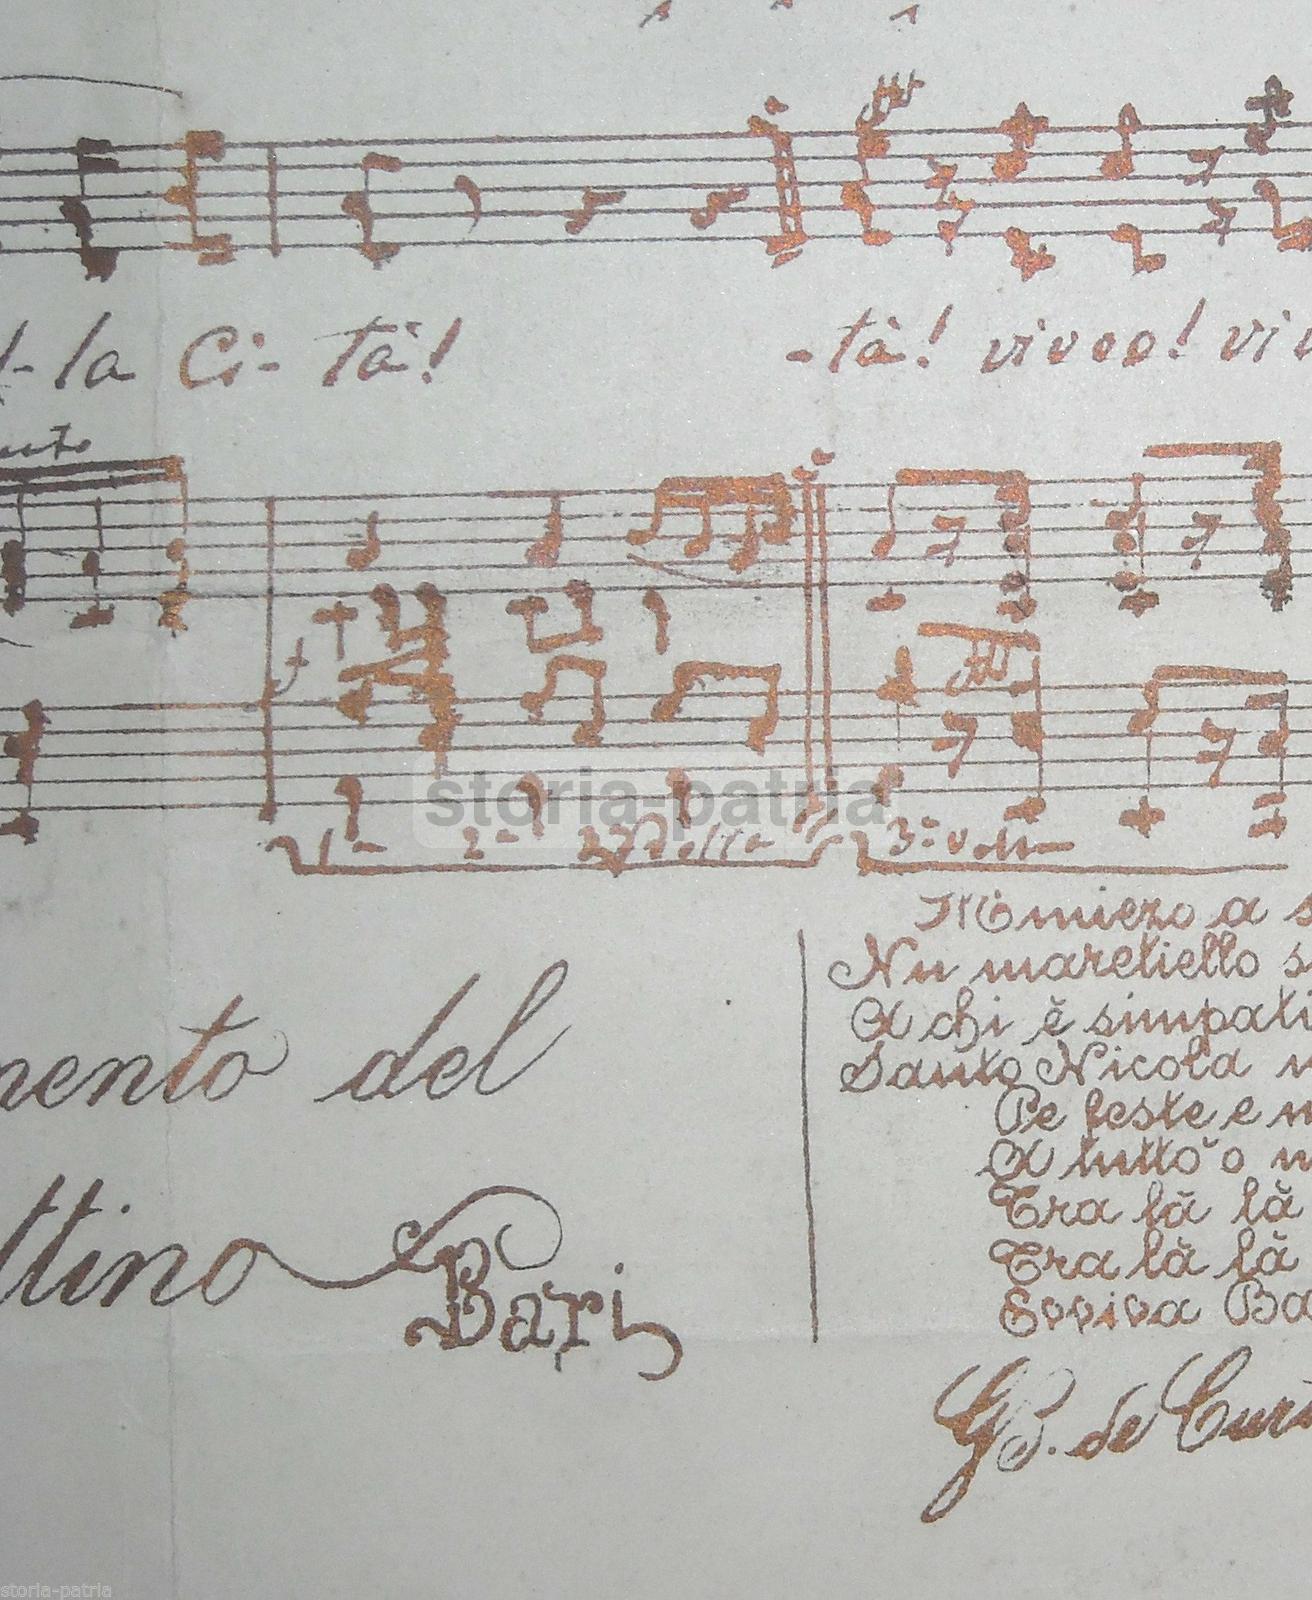 l-la Ci-tà! -tà! vivoo! vi
1ª 2ª volta 3ª volta
mento del
ttino
Bari
miezo a s
Nu maretiello s
A chi è simpati
Santo Nicola n
Pe feste e n
A tutto 'o n
Tra là là
Tra là là
Evviva Ba
G. de Curt
storia-patria
storia-patria